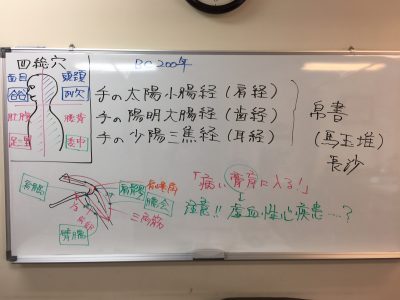 四総穴
BC 200年
面目
頭項
合谷
列欠
肚腹
腰背
足三里
委中
手の太陽小腸経（肩経）
手の陽明大腸経（歯経）
手の少陽三焦経（耳経）
帛書
（馬王堆）
長沙
「病い膏肓に入る！」
注意!! 虚血性心疾患……？
肩髃
臑会
三角筋
臂臑